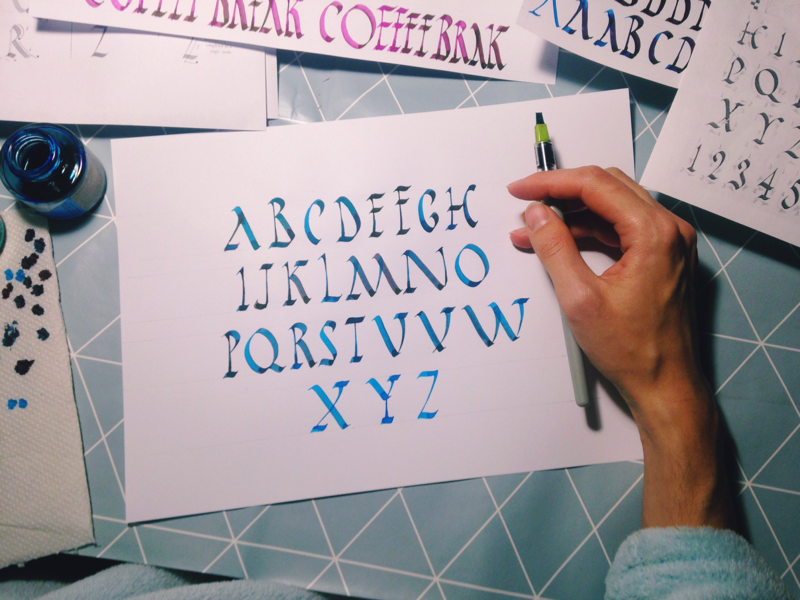 COFFEE BREAK COFFEE BRAK
R. Z Z
AAABCD
H I
P Q R
X Y Z
1 2 3 4 5
ABCDEFGH
IJKLMNO
PQRSTUVW
XYZ